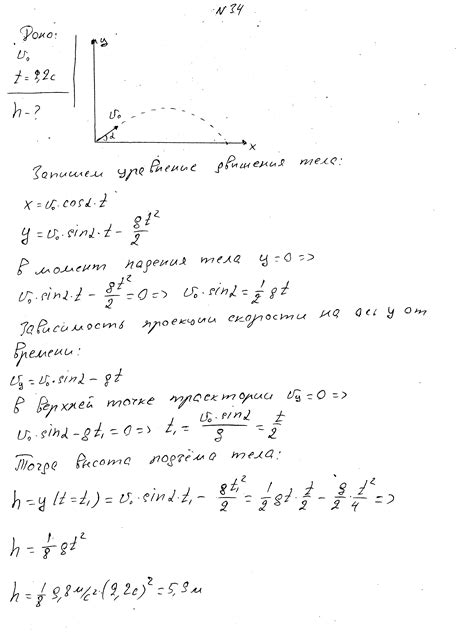 N 34
Дано:
v₀
t = 2,2с
h - ?
y
v₀
α
x
Запишем уравнение движения тела:
x = v₀·cosα·t
y = v₀·sinα·t - gt²/2
в момент падения тела y = 0 =>
v₀·sinα·t - gt²/2 = 0 => v₀·sinα = 1/2 gt
Зависимость проекции скорости на ось y от
времени:
v_y = v₀·sinα - gt
в верхней точке траектории v_y = 0 =>
v₀·sinα - gt₁ = 0 => t₁ = v₀·sinα/g = t/2
Тогда высота подъёма тела:
h = y(t = t₁) = v₀·sinα·t₁ - gt₁²/2 = 1/2 gt·t/2 - g/2·t²/4 =>
h = 1/8 gt²
h = 1/8 9,8м/с²·(2,2с)² = 5,9м